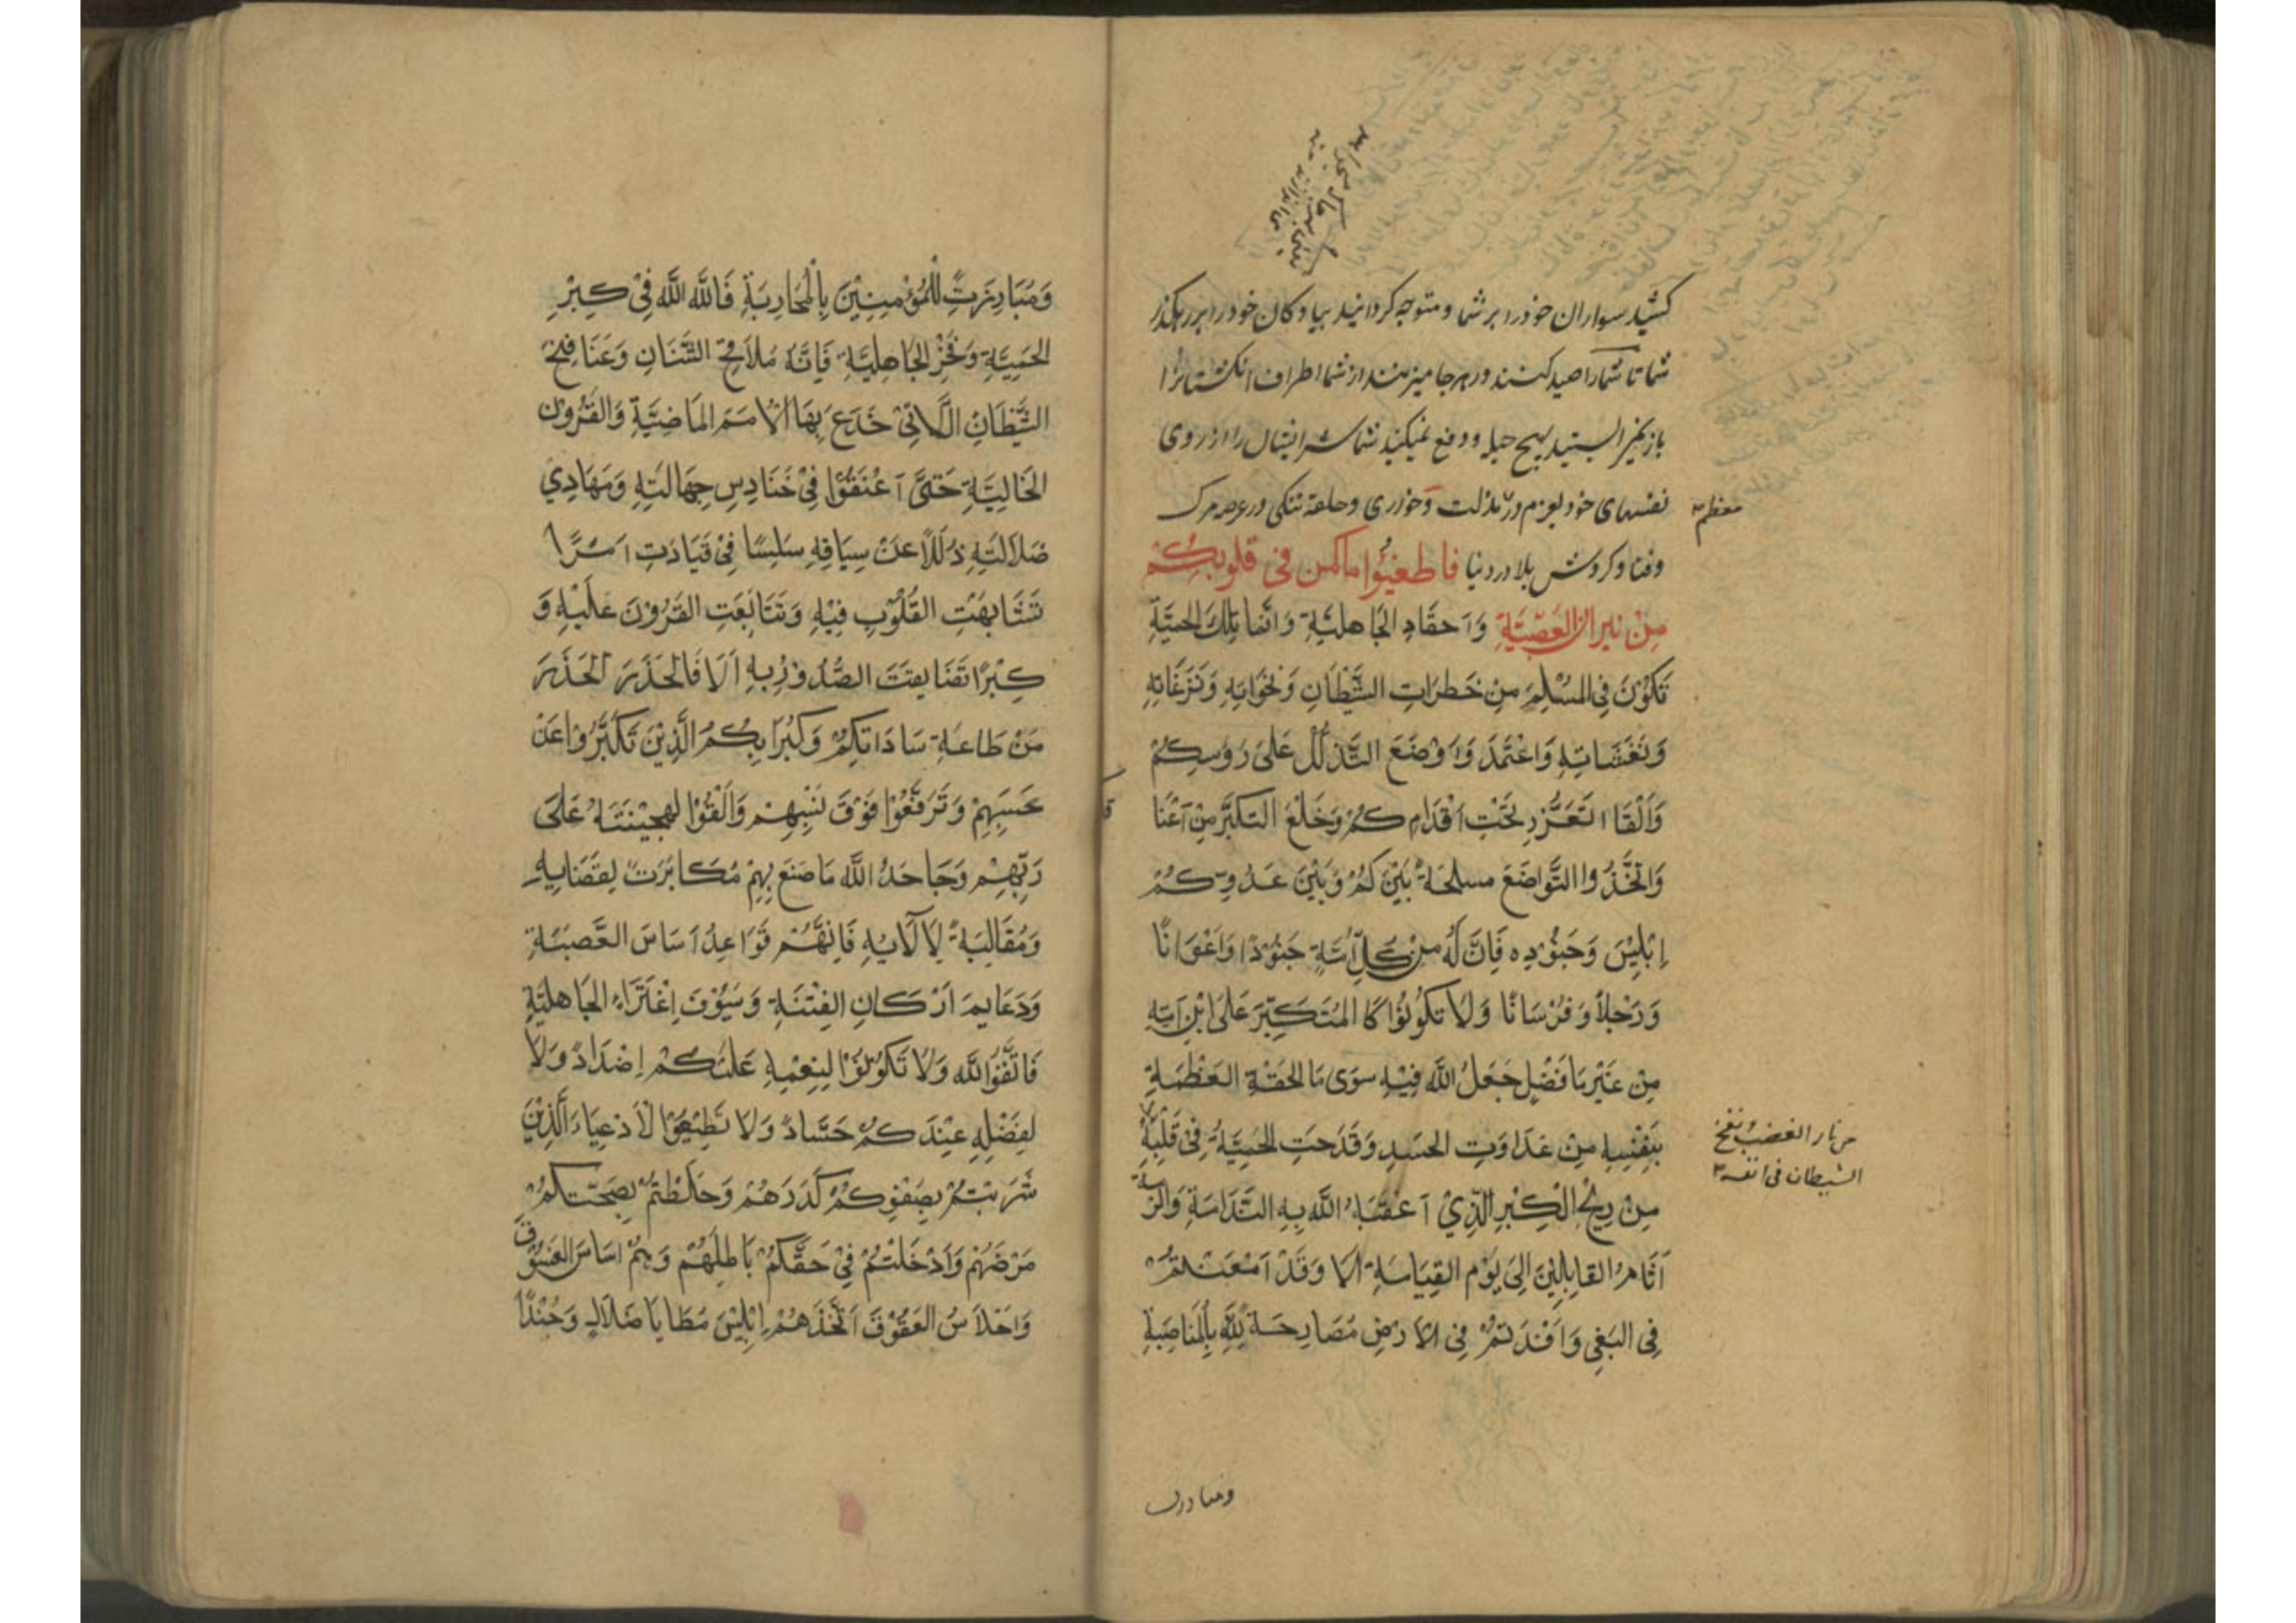 کشید سواران خود را بر شما و متوجه گردانید پیادگان خود را بر رهگذر
شما تا شما را صید کنند در هر جا میزنند از شما اطراف انگشتانرا
باز نمیایستید بهیچ حیله و دفع نمیکنید شما شر ایشان را از روی
نفسهای خود بعزم در مذلت وخواری و حلقه تنکی و عرصه مرک
معظم
وفنا و کردش بلا در دنیا فاطفئوا ما کمن فی قلوبکم
مِنْ نیران العَصَبیَّةِ وَاَحقَادِ الجَاهلیَّةِ وَانَّما تِلكَ الحَمیَّةِ
تَکُوْنَ فِی المُسْلِمَ مِنْ خَطَرَاتِ الشَّیْطَانِ وَنَخَوَاتِهِ وَنَزَغَاتِهِ
وَنَفَثَاتِهِ وَاعْتَمَدَ وَاوَضْعَ التَّذَلُّلَ عَلیٰ رَؤسِکُمْ
وَاَلْقَا التَّعَزُّزِ تَحْتَ اَقْدَامِکُمْ وَخَلْعَ التکَبَّر مِنْ اَعْنَا
وَاتَّخَذُوا التَّوَاضَعَ مسلحَةً بَیْنَ کُمْ وَبَیْنَ عَدُوِّکُمْ
اِبْلِیْسَ وَجَنُوْدِه فَاِنَّ لَهُ مِنْ کُلِّ اُمَّةٍ جَنُوْدًا وَاَعْوَانًا
وَرَجْلاً وَفُرْسَانًا وَلاَ تَکُوْنُوْا کَا المُتَکَبِّرَ عَلیَ ابْنِ اُمِّهِ
مِنْ غَیْرِ مَا فَضْلٍ جَعَلَ اللّٰه فِیْهِ سِوَی مَا لَحقَةِ العَظْمَةِ
بِنَفْسِهِ مِنْ عَدَاوَتِ الحَسَدِ وَقَدَحَتِ الحَمِیَّةُ فِیْ قَلْبِهِ
من نار الغضب ونفخ
الشیطان فی انفه
مِنْ رِیْحِ الْکِبْرِ الَّذِیْ اَعْقَبَهُ اللّٰه بِهِ النَّدَامَةِ وَالزَمَهُ
اَثَامَ القَاتِلِیْنَ اِلیَ یَوْمِ القِیَامَةِ اَلاَ وَقَدْ اَمْعَنْتُمْ
فِی البَغِی وَاَفْسَدْتُمْ فِی الاَرْضِ مُصَارِحَةً لِلّٰهِ بِالمُنَاصِبَةِ
ومبارزت
وَمُبَارِزَتٍ لِلْمُؤْمِنِیْنَ بِالْمُحَارِبَةِ فَاللّٰهَ اللّٰهَ فِیْ کِبْرِ
الحَمِیَّةِ وَفَخْرِ الجَاهِلِیَّةِ فَاِنَّهُ مُلاَقِحُ الشَّنَانِ وَمَنَافِخُ
الشَّیْطَانِ الَّلاتِیْ خَدَعَ بِهَا الْاُمَمَ المَاضِیَّةِ وَالقُرُوْنَ
الخَالِیَّةِ حَتَّیٰ اَعْنَقُوْا فِیْ حَنَادِسِ جِهَالَتِهِ وَمَهَادِیْ
ضَلاَلَتِهِ ذُلَلاً عَنْ سِیَاقِهِ سَلِسًا فِیْ قَیَادَتِ اَمْرًا
تَشَابَهَتِ القَلُوْبِ فِیْهِ وَتَتَابَعَتِ القُرُوْنَ عَلَیْهِ وَ
کِبْرًا تَضَایقَتَ الصُّدُوْرُ بِهِ اَلاَ فَالحَذَرَ الحَذَرَ
مَنْ طَاعَةِ سَادَاتِکُمْ وَکُبَرَایِکُمْ الَّذِیْنَ تَکَبَّرُوْا عَنْ
حَسَبِهِمْ وَتَرَفَّعُوْا فَوْقَ نَسَبِهِمْ وَاَلْقُوْا الهجِیْنَةَ عَلیٰ
رَبِّهِمْ وَجَاحَدُ اللّٰه مَا صَنَعَ بِهِمْ مُکَابَرَتَ لِقَضَایِهِ
وَمُغَالِبَةً لِاَلَایِهِ فَاِنَّهُمْ قَوَاعِدُ اَسَاسَ العَصَبِیَّةِ
وَدَعَایِمَ اَرْکَانِ الفِتْنَةِ وَسُیُوْفَ اِعْتَزَاءِ الجَاهِلیَّةِ
فَاتَّقُوْاللّٰه وَلاَ تَکُوْنُوْا لِنِعْمِهِ عَلَیْکُمْ اِضْدَادً وَلاَ
لِفَضْلِهِ عِنْدَکُمْ حَسَّادً وَلاَ تَطِیْعُوْا لْاَدْعِیَاءَ الَّذِیْنَ
شَرَبْتُمْ بِصَفْوِکُمْ کَدَرَهُمْ وَخَلَطْتُمْ بِصَحَّتَکُمْ
مَرْضَهُمْ وَاَدْخَلْتُمْ فِیْ حَقَّکُمْ بَاطِلَهُمْ وَهُمْ اسَاسَ الفُسُوْقَ
وَاحْلاَسُ العَقُوْقَ اَتَّخَذَهُمْ اِبْلِیْسَ مَطَایَا ضَلاَلٍ وَجُنْدًا